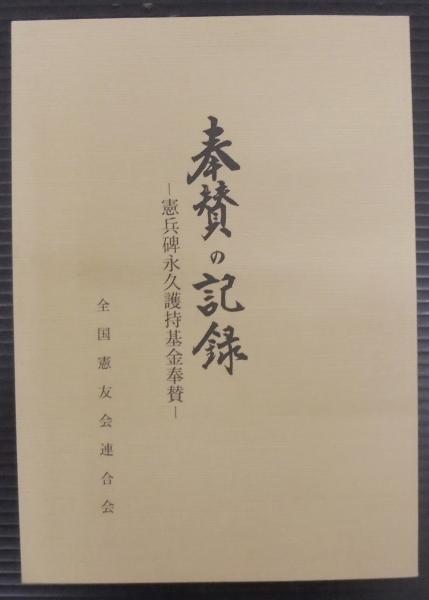 奉賛の記録
―憲兵碑永久護持基金奉賛―
全国憲友会連合会